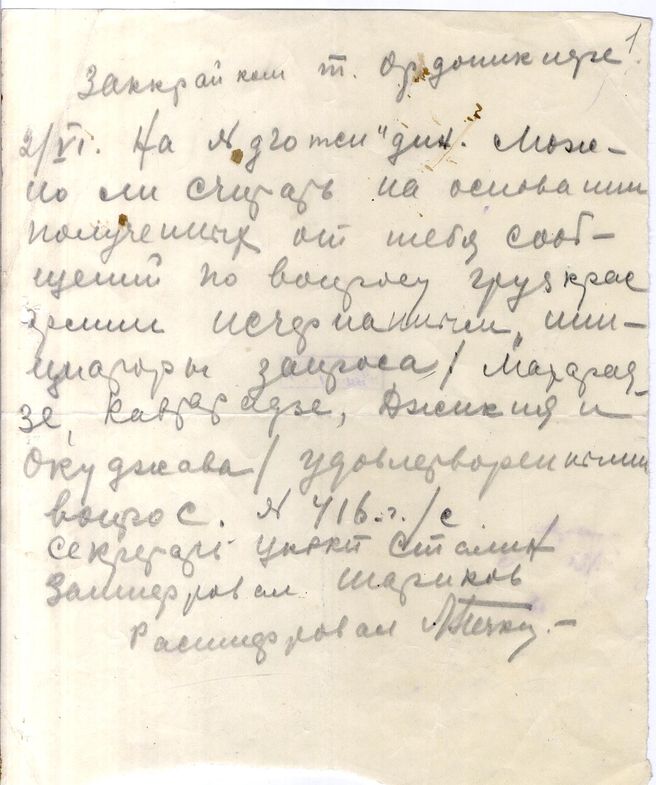 1.
Заккрайком т. Орджоникидзе
2/VI. На № дин. Мож-
но ли считать на основании
полученных от тебя сооб-
щений по вопросу грузкрас
армии исчерпанным, ини-
циаторы запроса / Махарад-
зе, Кавтарадзе, Джикия и
Окуджава / удовлетворенными
вопрос. № 416.г./с
Секретарь Сталин
Зашифровал Шариков
Расшифровал